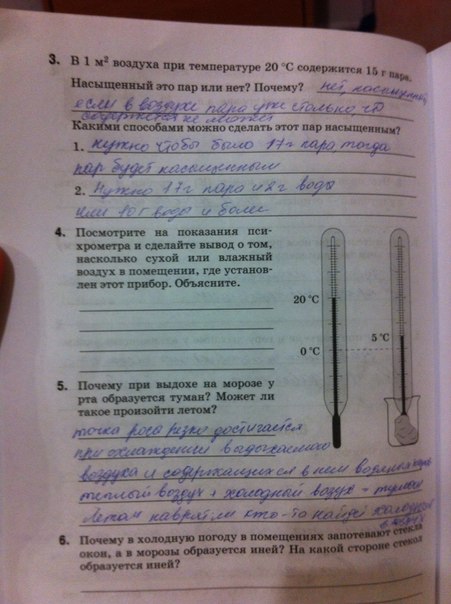 3. В 1 м² воздуха при температуре 20 °С содержится 15 г пара.
Насыщенный это пар или нет? Почему? нет, насыщен
если в воздухе пара уже столько, что
содержатся не может
Какими способами можно сделать этот пар насыщенным?
1. нужно чтобы было 17 г пара тогда
пар будет насыщенным
2. Нужно 17 г пара и 2 г воды
или 10 г воды и более
4. Посмотрите на показания пси-
хрометра и сделайте вывод о том,
насколько сухой или влажный
воздух в помещении, где установ-
лен этот прибор. Объясните.
20 °С
5 °С
0 °С
5. Почему при выдохе на морозе у
рта образуется туман? Может ли
такое произойти летом?
точка роса резко достигается
при охлаждении выдыхаемого
воздуха и содержащихся в нем водяных
теплый воздух + холодный воздух = туман
Летом наврятли кто-то найдет холодный
6. Почему в холодную погоду в помещениях запотевают стекла
окон, а в морозы образуется иней? На какой стороне стекол
образуется иней?